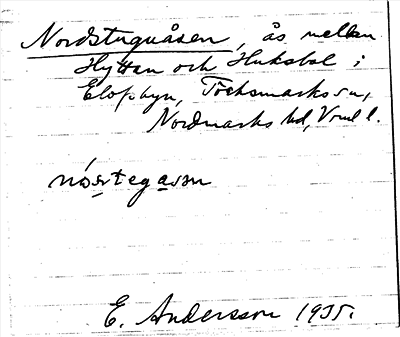 Nordstuguåsen, ås mellan
Hyttan och Huksbol i
Elofsbyn, Töcksmarks sn,
Nordmarks hd, Vrml l.
nó̱ɐstega̱sən
E. Andersson 1935.